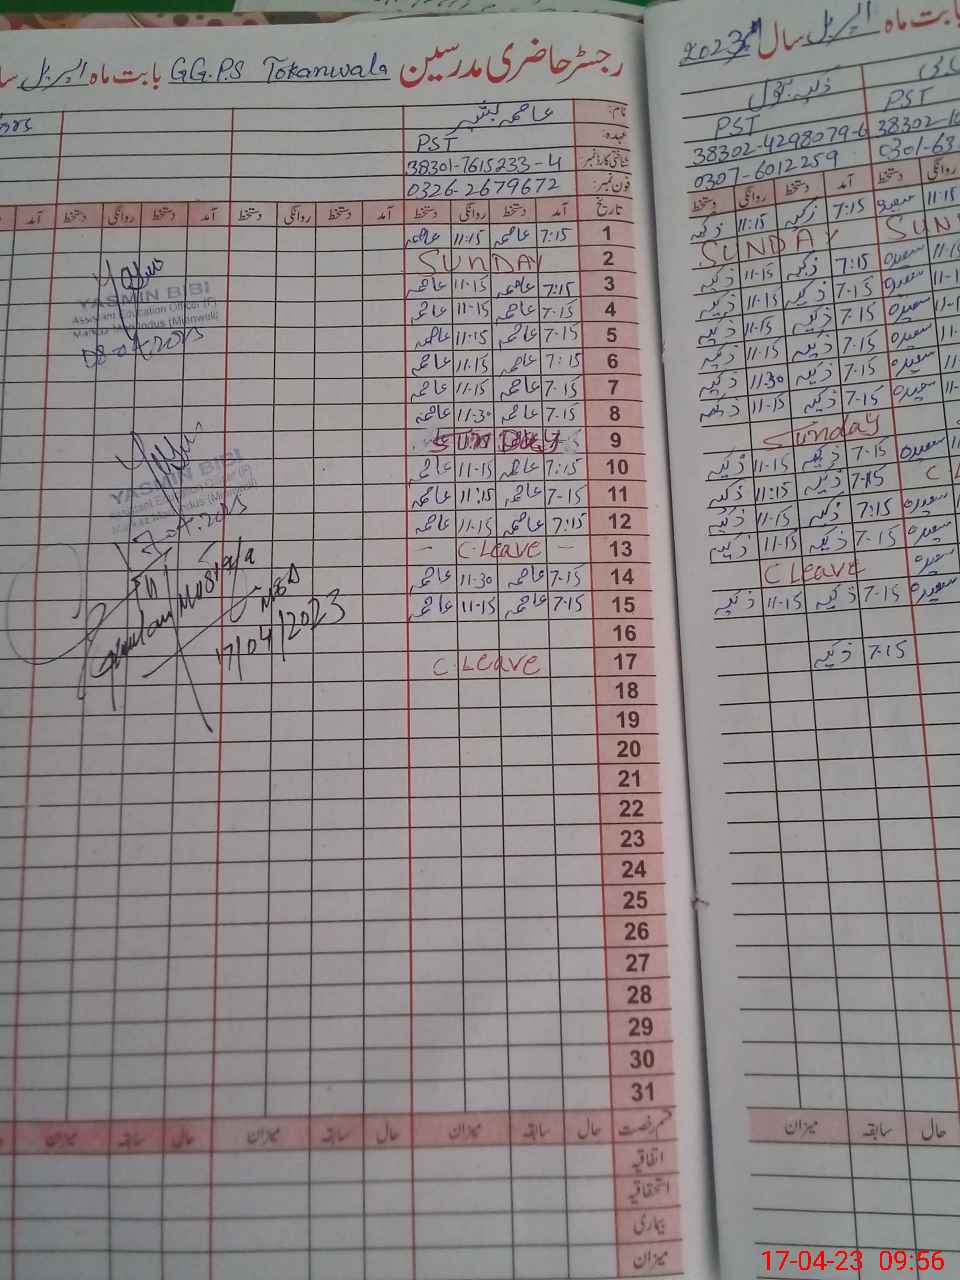 رجسٹر حاضری مدرسین G.G.P.S Tokanwala بابت ماہ اپریل
نام: عاصمہ بشیر
عہدہ: PST
شناختی کارڈ نمبر 38301-7615233-4
فون نمبر: 0326-2679672
تاریخ آمد دستخط روانگی دستخط آمد دستخط روانگی دستخط آمد دستخط روانگی دستخط آمد
1 7:15 عاصمہ 11:15 عاصمہ
2 SUNDAY
3 7:15 عاصمہ 11-15 عاصمہ
4 7-15 عاصمہ 11-15 عاصمہ
5 7-15 عاصمہ 11:15 عاصمہ
6 7:15 عاصمہ 11-15 عاصمہ
7 7-15 عاصمہ 11-15 عاصمہ
8 7-15 عاصمہ 11-30 عاصمہ
9 Sunday
10 7:15 عاصمہ 11-15 عاصمہ
11 7-15 عاصمہ 11:15 عاصمہ
12 7:15 عاصمہ 11-15 عاصمہ
13 - C.Leave -
14 7-15 عاصمہ 11-30 عاصمہ
15 7-15 عاصمہ 11-15 عاصمہ
16
17 C.Leave
18
19
20
21
22
23
24
25
26
27
28
29
30
31
قسم رخصت حال سابقہ میزان حال سابقہ میزان حال سابقہ میزان
اتفاقیہ
استحقاقیہ
بیماری
میزان
YASMIN BIBI
Assistant Education Officer (F)
08-04-2023
YASMIN BIBI
Assistant Education Officer (F)
17/04/2023
بابت ماہ اپریل سال 2023
PST PST
38302-4298079-6 38302-
0307-6012259 0301-63
روانگی دستخط آمد دستخط روانگی دستخط
11:15 7:15 ذکیہ 11:15 ذکیہ
SUN SUNDAY
11-15 7:15 ذکیہ 11-15 ذکیہ
7-15 ذکیہ 11-15 ذکیہ
7-15 ذکیہ 11-15 ذکیہ
7-15 ذکیہ 11-15 ذکیہ
7-15 ذکیہ 11-30 ذکیہ
7-15 ذکیہ 11-15 ذکیہ
Sunday
7-15 ذکیہ 11-15 ذکیہ
7-15 ذکیہ 11:15 ذکیہ
7:15 ذکیہ 11-15 ذکیہ
7-15 ذکیہ 11-15 ذکیہ
C Leave
7-15 ذکیہ 11-15 ذکیہ
7.15 ذکیہ
حال سابقہ میزان
17-04-23 09:56